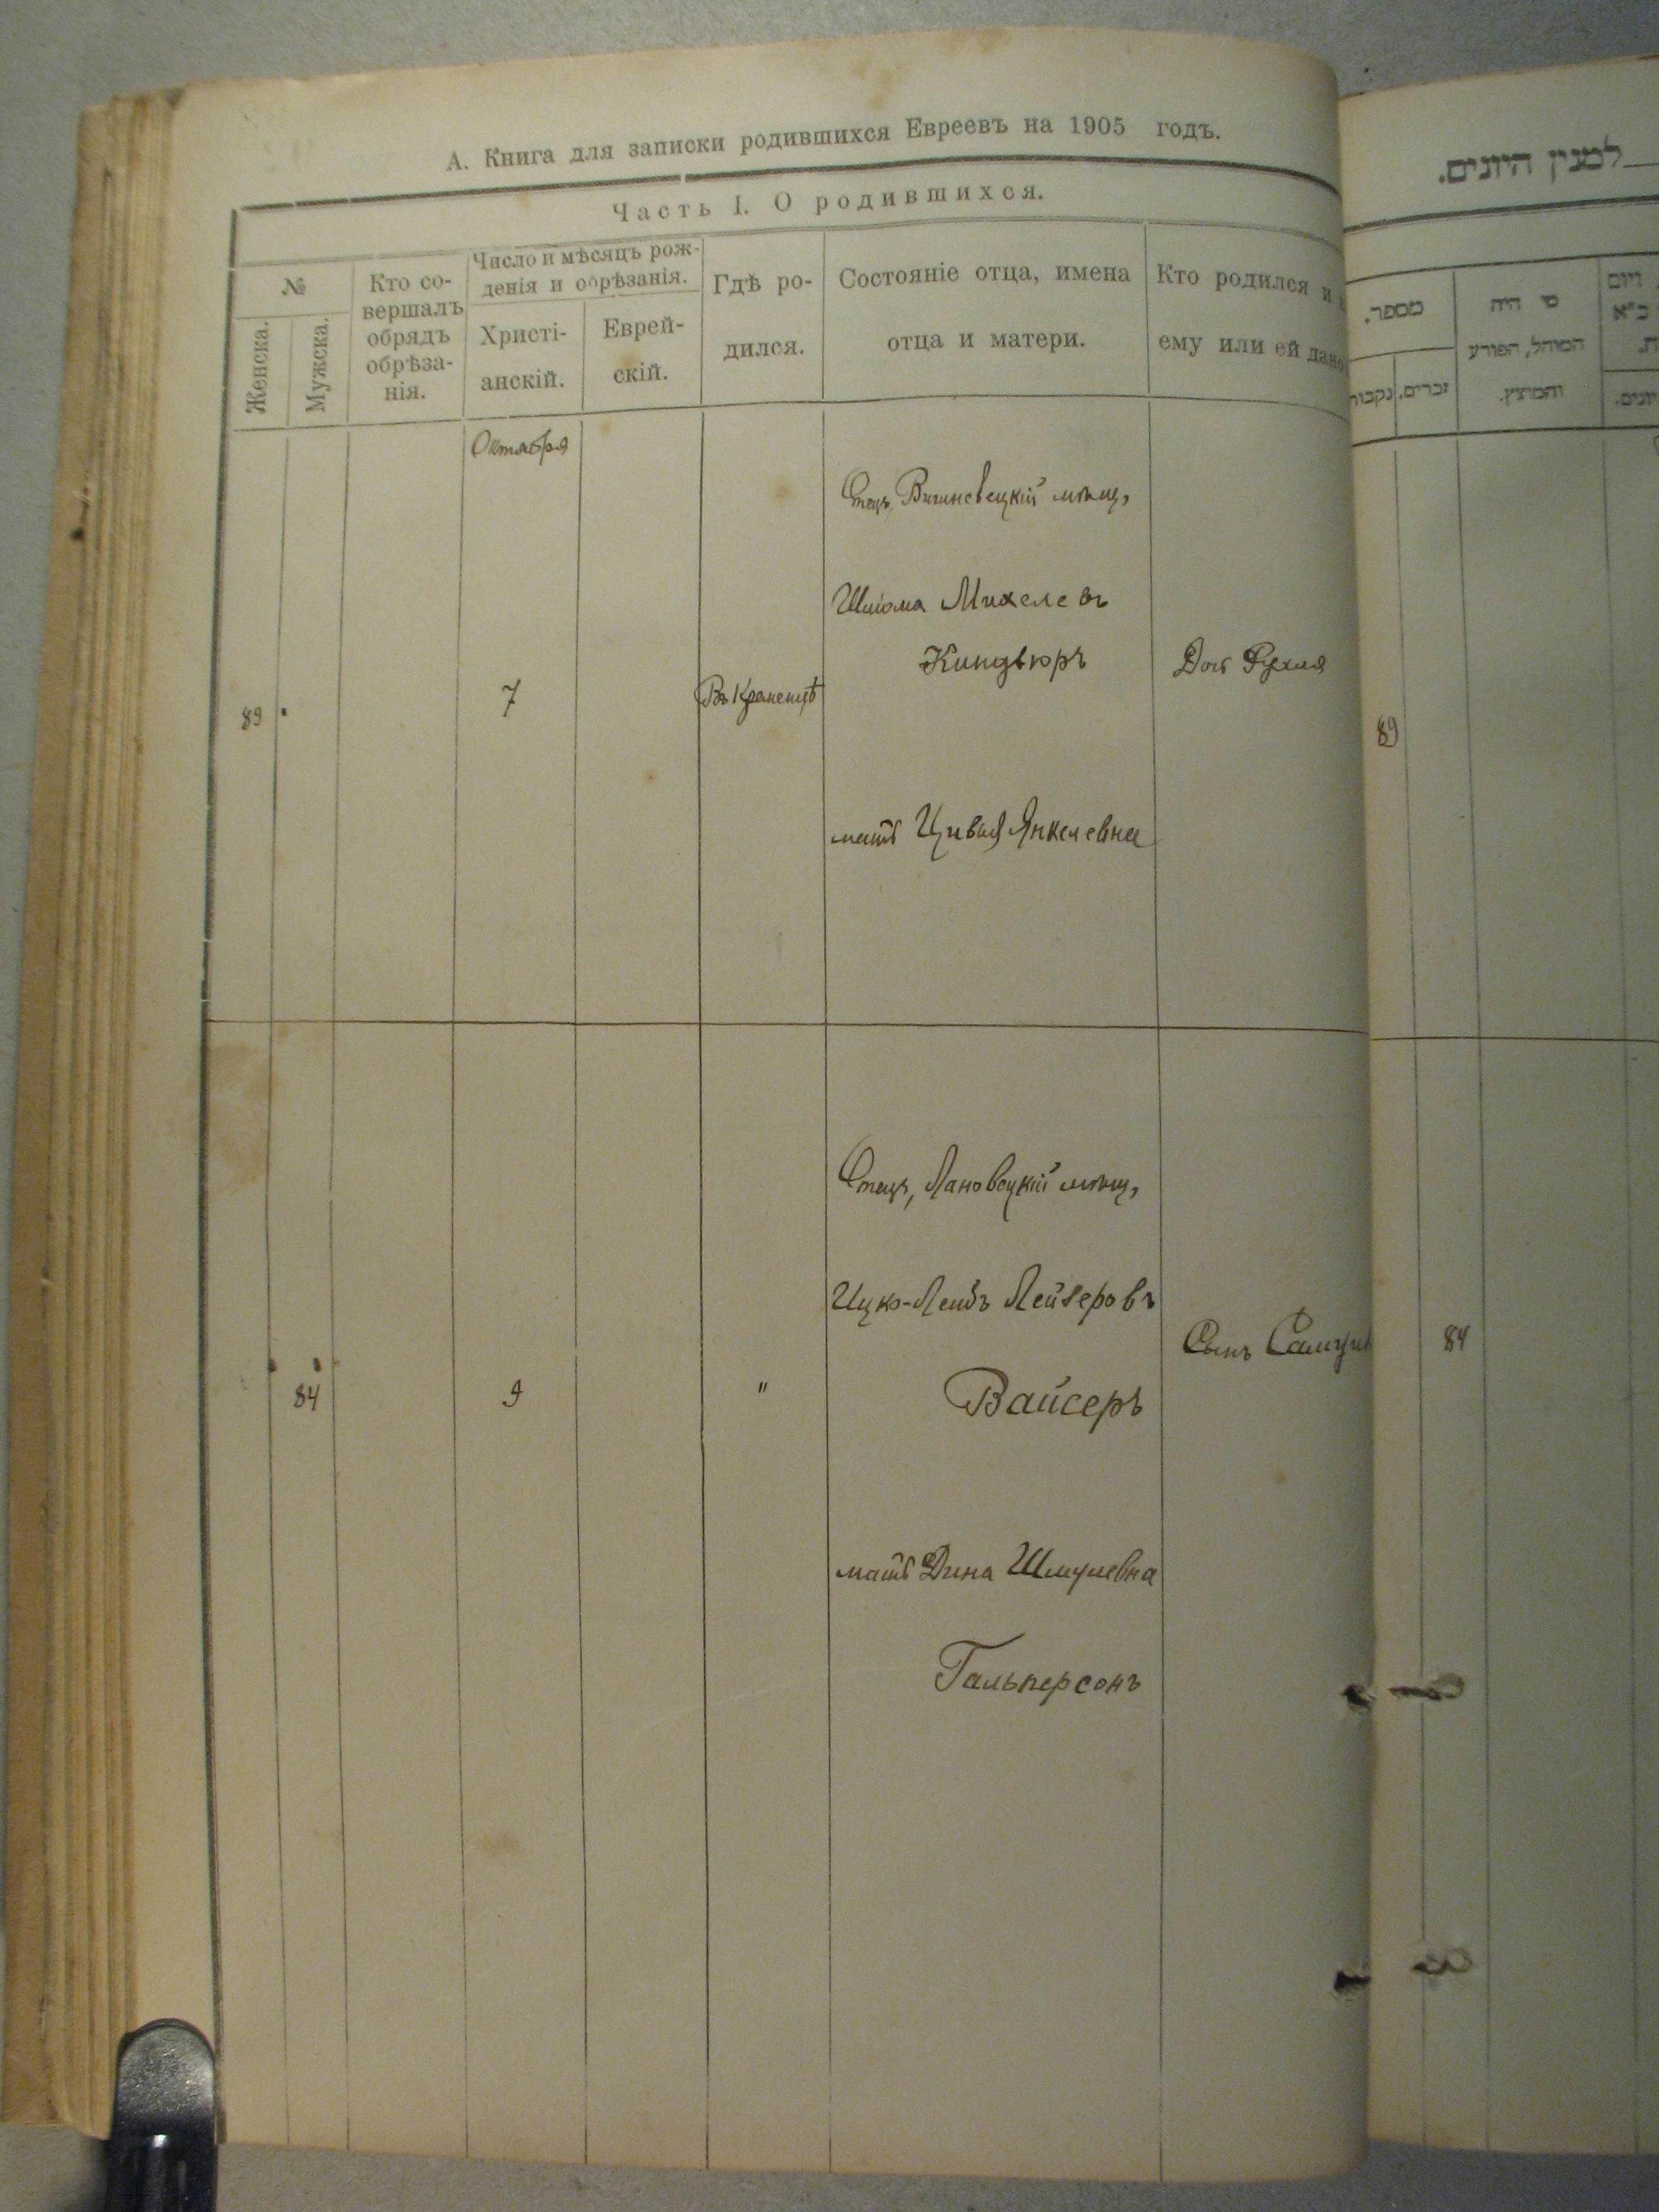 А. Книга для записки родившихся Евреевъ на 1905 годъ.
Часть I. О родившихся.
№
Женска.
Мужска.
Кто со-
вершалъ
обрядъ
обрѣза-
нія.
Число и мѣсяцъ рож-
денія и обрѣзанія.
Христі-
анскій.
Еврей-
скій.
Гдѣ ро-
дился.
Состояніе отца, имена
отца и матери.
Кто родился и
ему или ей дано
Октября
89
7
Въ Кременцѣ
Отецъ, Вишневецкій мѣщ,
Шлома Михелевъ
мать Цивья Янкелевна
Дочь Рухля
84
9
"
Отецъ, Лановецкій мѣщ,
Ицко-Лейбъ Лейзеровъ
Вайсеръ
мать Дина Шмулевна
Гальперсонъ
Сынъ
למנין היונים.
מספר.
זכרים.
מי היה
המוהל, הפורע
והמוצץ.
89
84